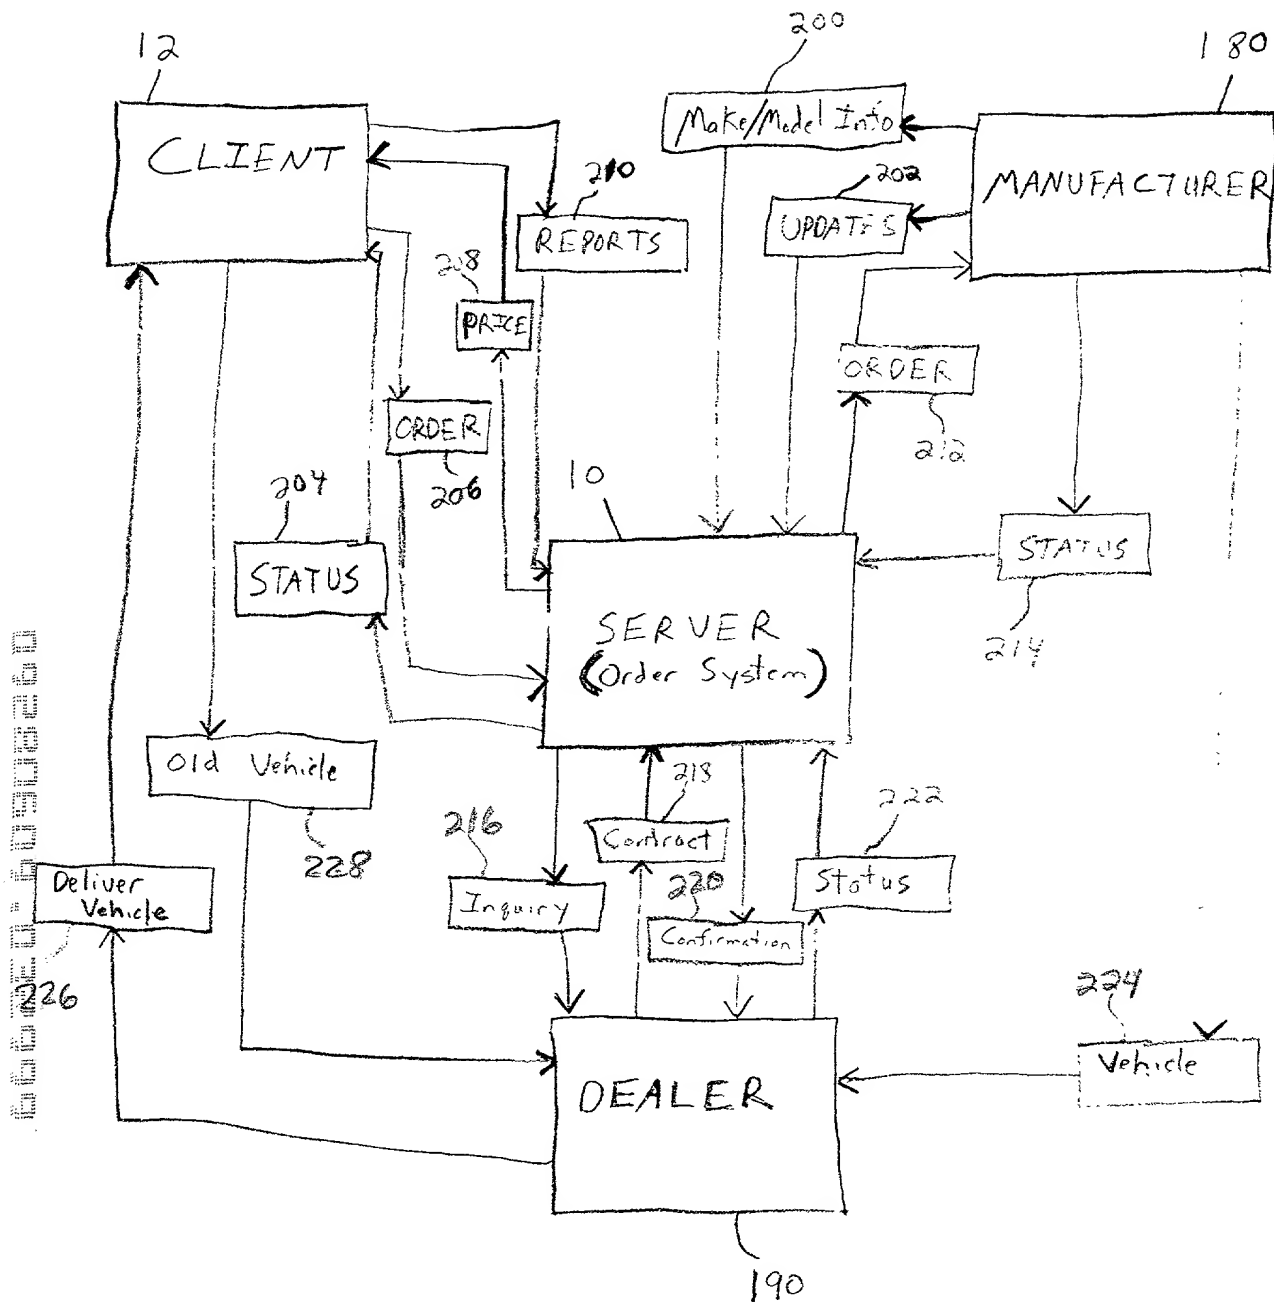 200
12
180
CLIENT
Make/Model Info
MANUFACTURER
210
202
REPORTS
UPDATES
208
PRICE
ORDER
212
ORDER
206
204
10
STATUS
STATUS
214
SERVER
(Order System)
Old Vehicle
228
218
222
216
Contract
Deliver
Vehicle
Status
220
Inquiry
Confirmation
226
224
Vehicle
DEALER
190